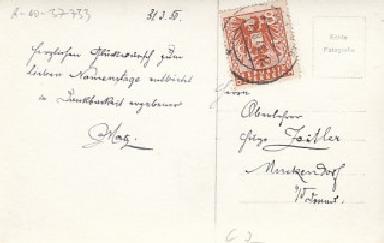 2-10-37733
31.3.
Herzlichen Glückwunsch zum
lieben Namenstage entbietet
in Dankbarkeit ergebener
Echte
Fotografie
Herrn
Oberlehrer
Zeitler
Munkendorf